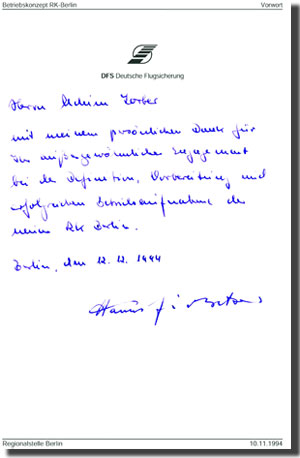 Betriebskonzept RK-Berlin Vorwort
DFS Deutsche Flugsicherung
Herrn Achim
mit meinem persönlichen Dank für
das außergewöhnliche Engagement
bei der Definition, Vorbereitung und
erfolgreichen Betriebsaufnahme der
neuen RK Berlin.
Berlin, den 12. 12. 1994
Regionalstelle Berlin 10.11.1994